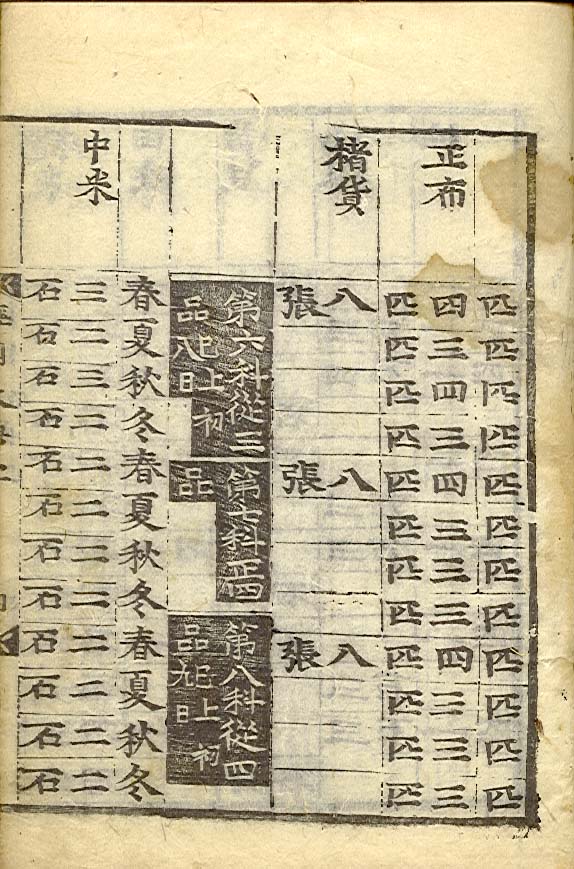 匹匹匹匹匹匹匹匹匹匹匹匹
正布
四匹
三匹
四匹
三匹
四匹
三匹
三匹
三匹
四匹
三匹
三匹
三匹
楮貨
八張
八張
八張
第六科從三
品已上初
八日
第七科正四
品
第八科從四
品已上初
九日
春夏秋冬春夏秋冬春夏秋冬
中米
三石
二石
三石
二石
二石
二石
二石
二石
二石
二石
二石
二石